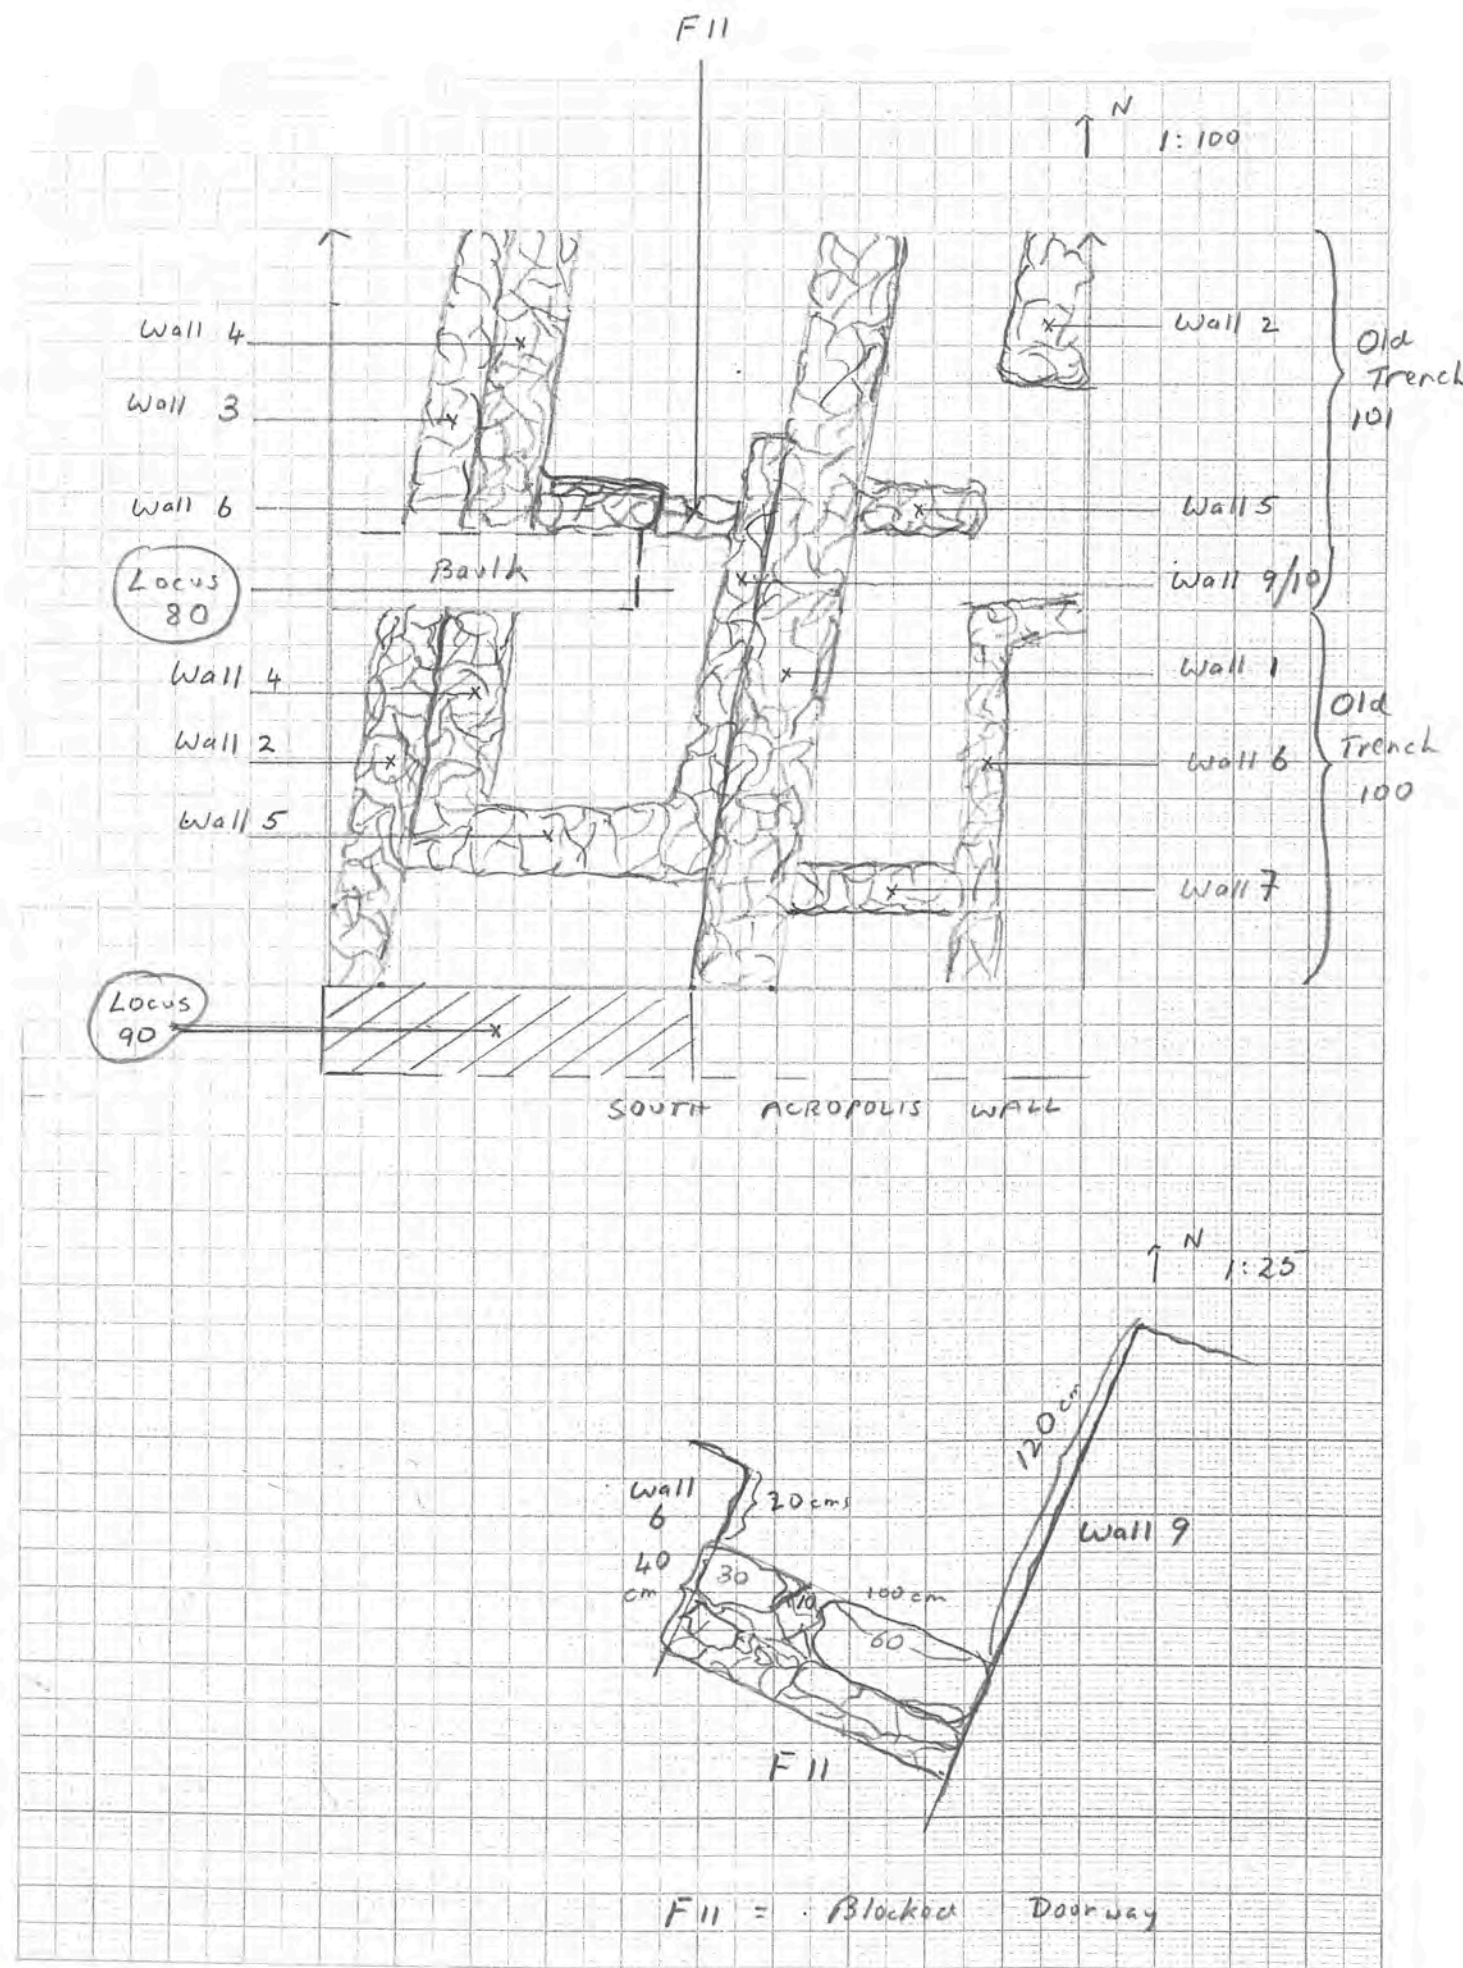 F 11
N
1:100
Wall 4
Wall 3
Wall 6
Locus
80
Baulk
Wall 4
Wall 2
Wall 5
Locus
90
Wall 2
Wall 5
Wall 9/10
Wall 1
Wall 6
Wall 7
Old
Trench
101
Old
Trench
100
SOUTH ACROPOLIS WALL
N
1:25
120 cm
Wall
6
20 cms
Wall 9
40
cm
30
10
100 cm
60
F 11
F 11 = Blocked Doorway